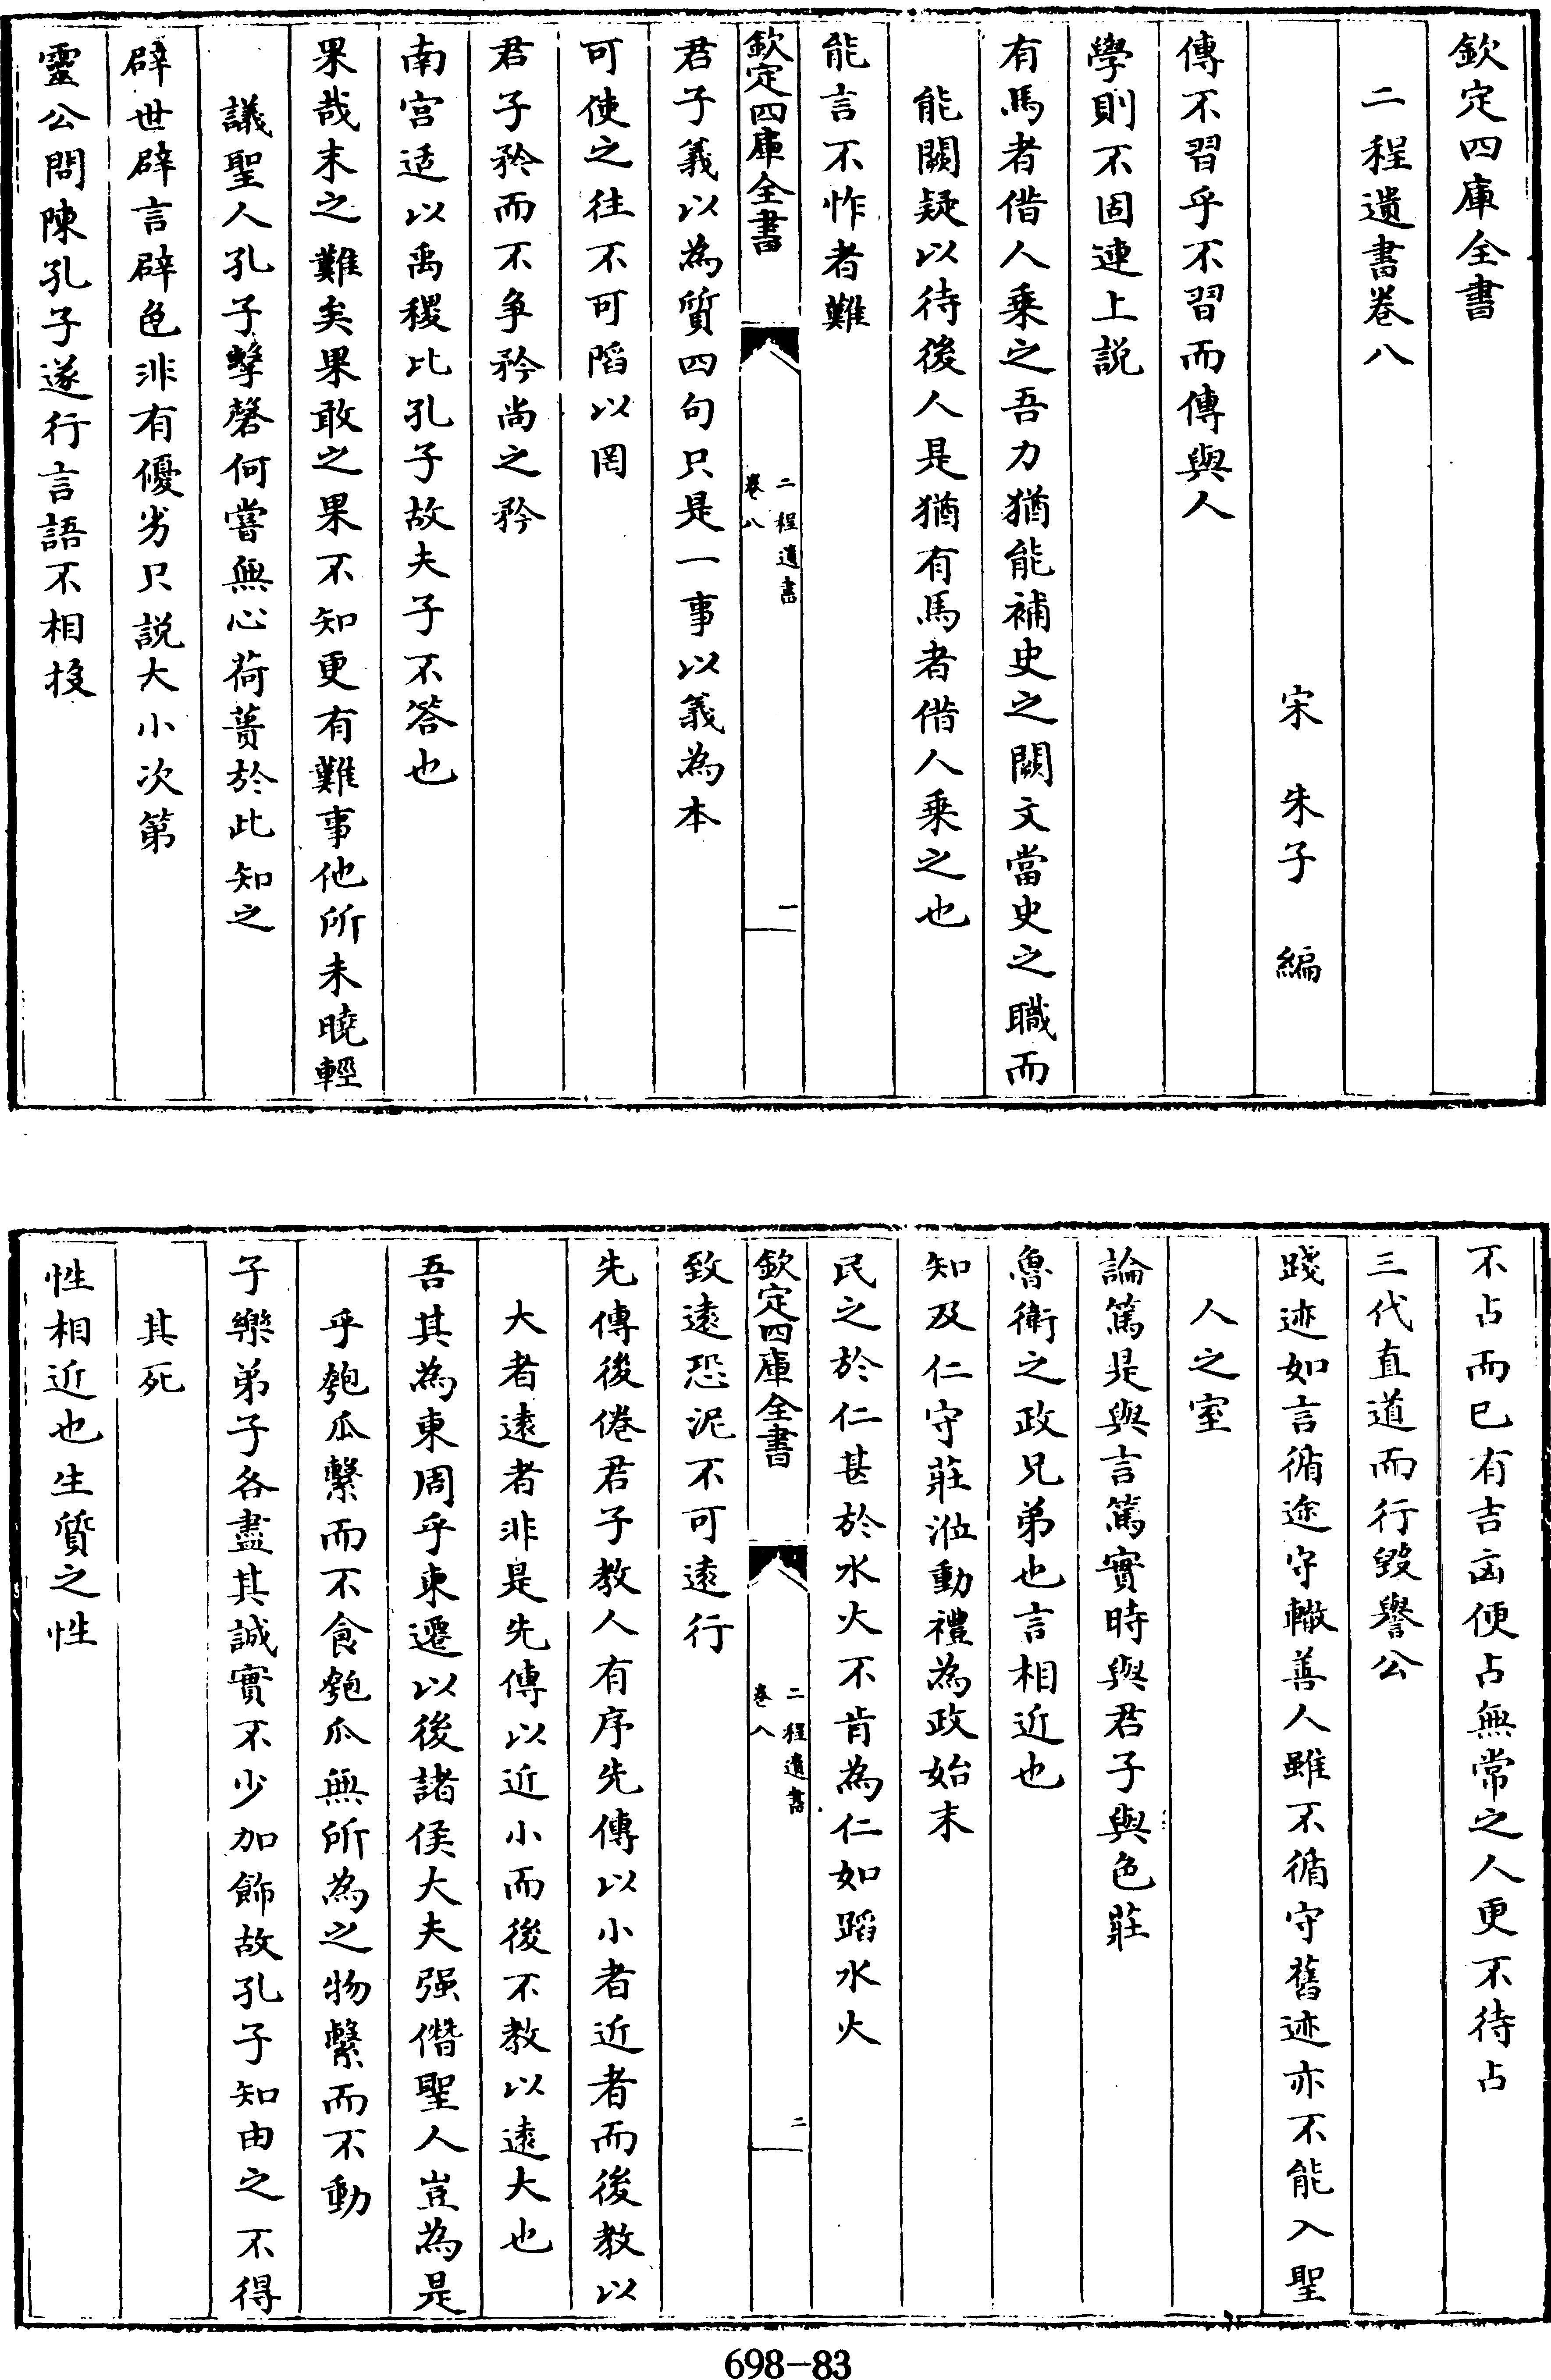 欽定四庫全書
二程遺書卷八
宋 朱子 編
傳不習乎不習而傳與人
學則不固連上説
有馬者借人乗之吾力猶能補史之闕文當史之職而
能闕疑以待後人是猶有馬者借人乗之也
能言不怍者難
欽定四庫全書
二程遺書
卷八
一
君子義以為質四句只是一事以義為本
可使之往不可陷以罔
君子矜而不争矜尚之矜
南宫适以禹稷比孔子故夫子不答也
果哉末之難矣果敢之果不知更有難事他所未曉輕
議聖人孔子擊磬何嘗無心荷蕢於此知之
辟世辟言辟色非有優劣只説大小次第
靈公問陳孔子遂行言語不相投
不占而已有吉凶便占無常之人更不待占
三代直道而行毁譽公
踐迹如言循途守轍善人雖不循守舊迹亦不能入聖
人之室
論篤是與言篤實時與君子與色莊
魯衛之政兄弟也言相近也
知及仁守莊涖動禮為政始末
民之於仁甚於水火不肯為仁如蹈水火
欽定四庫全書
二程遺書
卷八
二
致逺恐泥不可逺行
先傳後倦君子教人有序先傳以小者近者而後教以
大者逺者非是先傳以近小而後不教以逺大也
吾其為東周乎東遷以後諸侯大夫强僭聖人豈為是
乎匏瓜繫而不食匏瓜無所為之物繫而不動
子樂弟子各盡其誠實不少加飾故孔子知由之不得
其死
性相近也生質之性
698-83